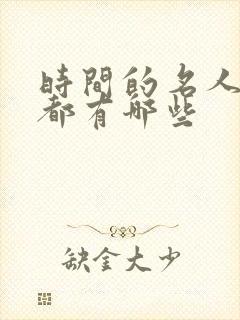 時間的名人
都有哪些
缺金大少